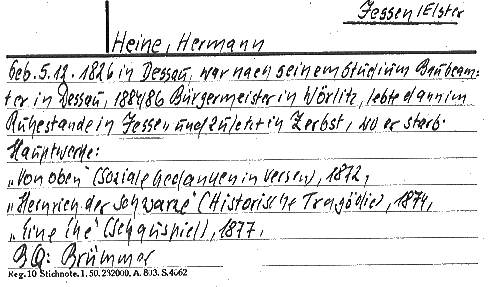 Jessen/Elster
Heine, Hermann
Geb. 5.12. 1826 in Dessau, war nach seinem Studium Baubeam-
ter in Dessau, 1884/86 Bürgermeister in Wörlitz, lebte dann im
Ruhestande in Jessen und zuletzt in Zerbst, wo er starb.
Hauptwerke:
„Von oben" (Soziale Gedanken in Versen), 1872,
„Heinrich der Schwarze" (Historische Tragödie), 1874,
„Eine Ehe" (Schauspiel), 1877.
BQ: Brümmer
Reg. 10 Stichnote. I. 50. 232000. A. 803. S. 4662